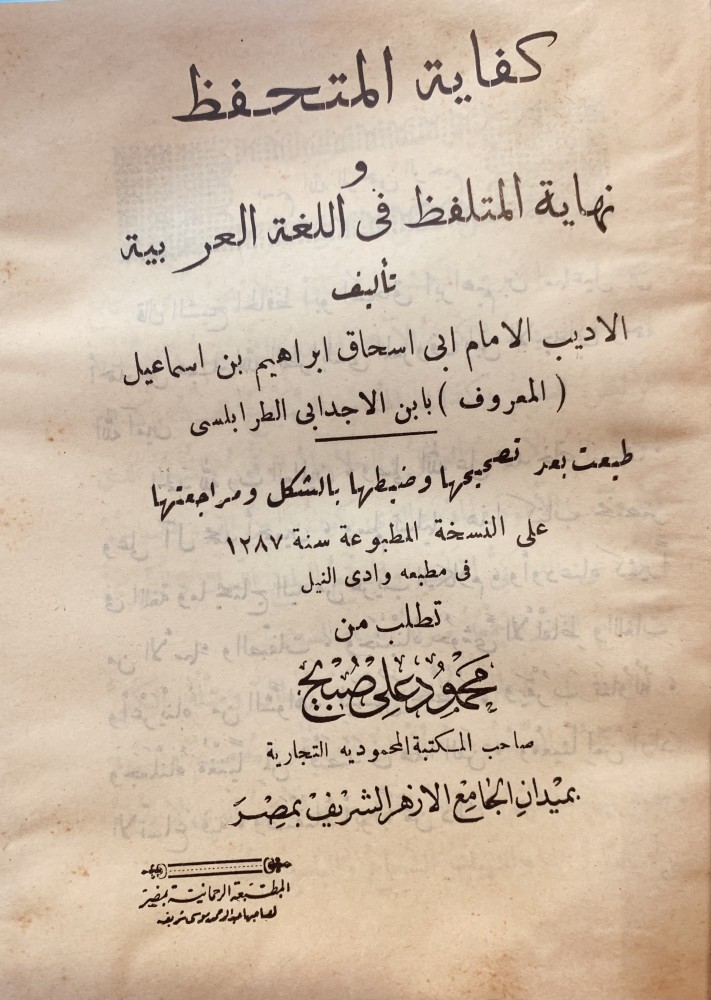 كفاية المتحفظ
و
نهاية المتلفظ فى اللغة العربية
تأليف
الاديب الامام ابى اسحاق ابراهيم بن اسماعيل
( المعروف ) بابن الاجدابى الطرابلسى
طبعت بعد تصحيحها وضبطها بالشكل ومراجعتها
على النسخة المطبوعة سنة ١٢٨٧
فى مطبعه وادى النيل
تطلب من
محمود على صبيح
صاحب المكتبة المحموديه التجارية
بميدان الجامع الازهر الشريف بمصر
المطبعة الرحمانية بمصر
لصاحبها عبد الرحمن موسى شريف